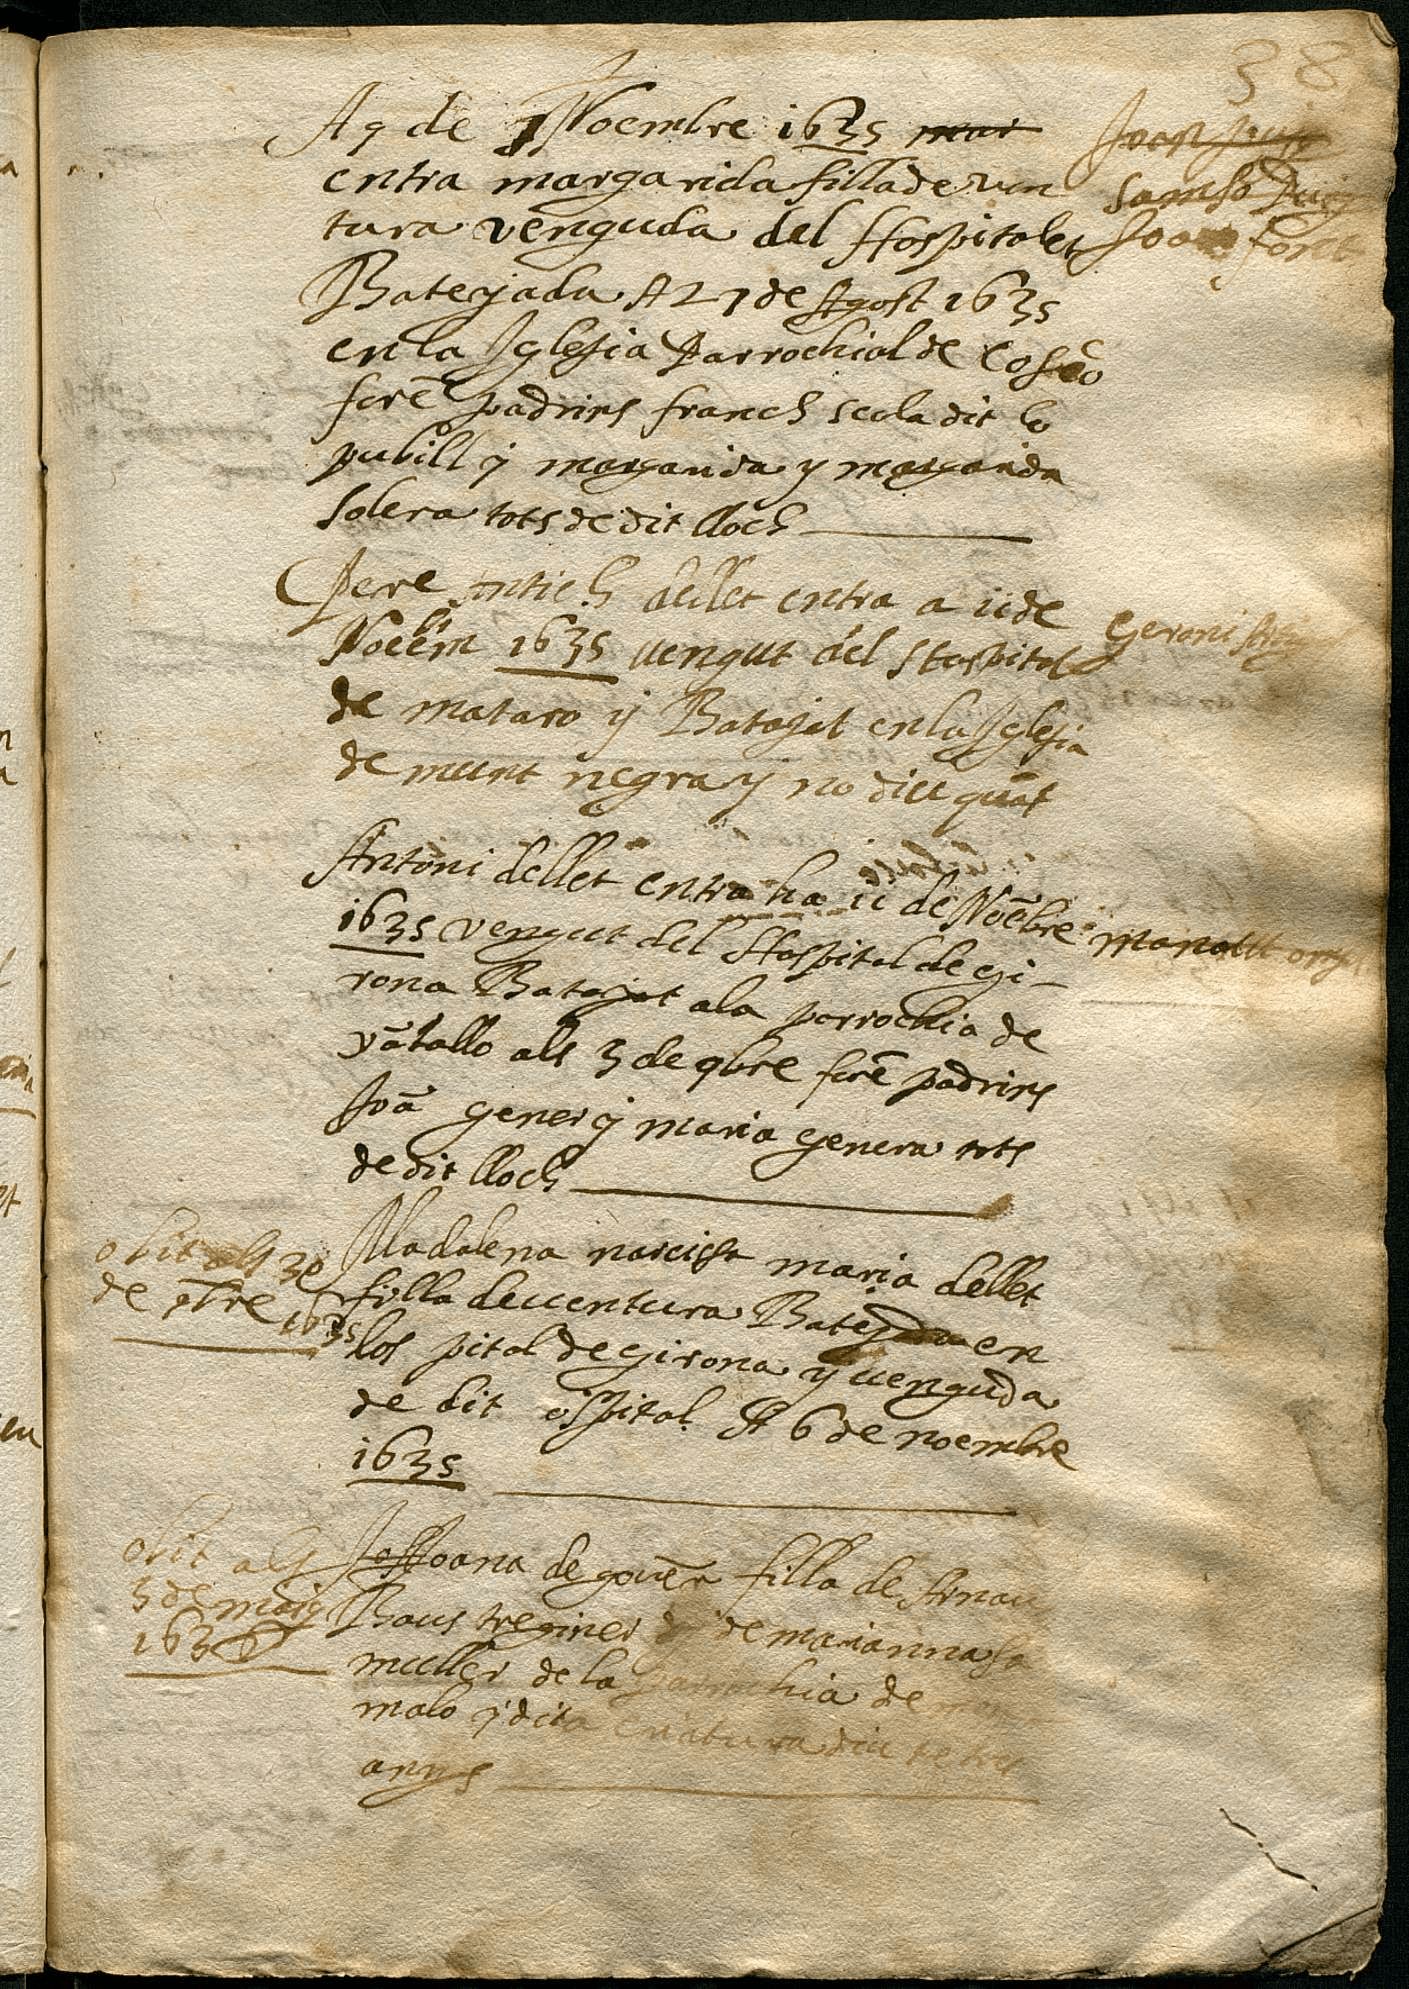 38
A 9 de Noembre 1635
entra margarida filla de ven
tura venguda del Hospitalet
Batejada A 27 de Agost 1635
en la Iglesia Parrochial de
forē padrins franch scola dit lo
pubill y margarida y margarida
solera tots de dit lloch
Samsó Puig
Joan
Pere Antich dellet entra a 11 de
Noēm 1635 vengut del Hospital
de mataro y Batajat en la Iglesia
de munt negra y no diu quāt
Geroni
Antoni dellet entra ha 11 de Noēbre
1635 vengut del Hospital de Gi
rona Batejat a la parrochia de
vātallo als 3 de 9bre forē padrins
Joā gener y maria genera tots
de dit lloch
obit als 30
de 9bre 1635
Madalena narcissa maria dellet
filla de ventura Batejada en
los pital de girona y venguda
de dit ospital A 6 de noembre
1635
obit als
3 de maig
1636
Joana de govērn filla de Arnau
Baus treginer y de marianna sa
muller de la parrochia de
malo y dita criatura diu te tres
anys